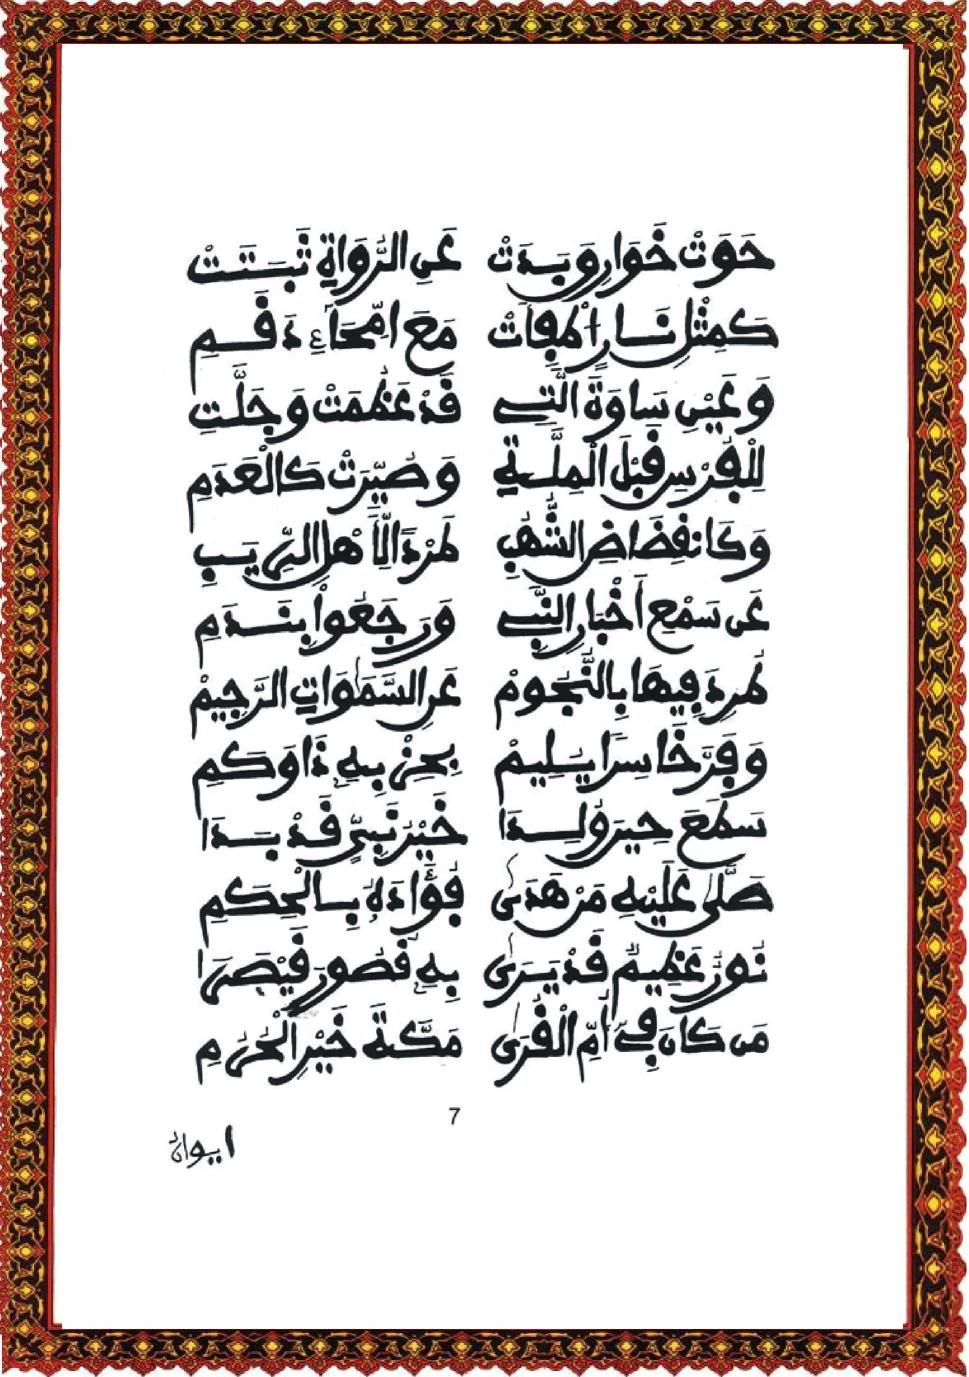 حَوَتْ خَوَارِقَ بَدَتْ عَنِ الرُّوَاةِ ثَبَتَتْ
كَمِثْلِ نَارٍ اُطْفِأَتْ مَعَ امِّحَاءِ دَقَمِ
وَعَيْنِ سَاوَةَ الَّتِي قَدْ عَظُمَتْ وَجَلَّتِ
لِلْفُرْسِ قَبْلَ الْمِلَّةِ وَصُيِّرَتْ كَالْعَدَمِ
وَكَانْقِضَاضِ الشُّهُبِ طَرْدًا لِأَهْلِ الرِّيَبِ
عَن سَمْعِ أَخْبَارِ النَّبِي وَرَجَعُوا بِنَدَمِ
طُرِدَ فِيهَا بِالنُّجُومْ عَنِ السَّمَوَاتِ الرَّجِيمْ
وَفَرَّ خَاسِرًا يَلِيمْ بِحِزْبِهِ ذَا وَكَمِ
سَطَعَ حِينَ وُلِدَا خَيْرُ نَبِيٍّ قَدْ بَدَا
صَلَّى عَلَيْهِ مَنْ هَدَى فُؤَادَهُ بِالْحِكَمِ
نُورٌ عَظِيمٌ قَدْ يَرَى بِهِ قُصُورَ قَيْصَرَا
مَن كَانَ فِي أُمِّ الْقُرَى مَكَّةَ خَيْرِ الْحُرَمِ
7
ايوان